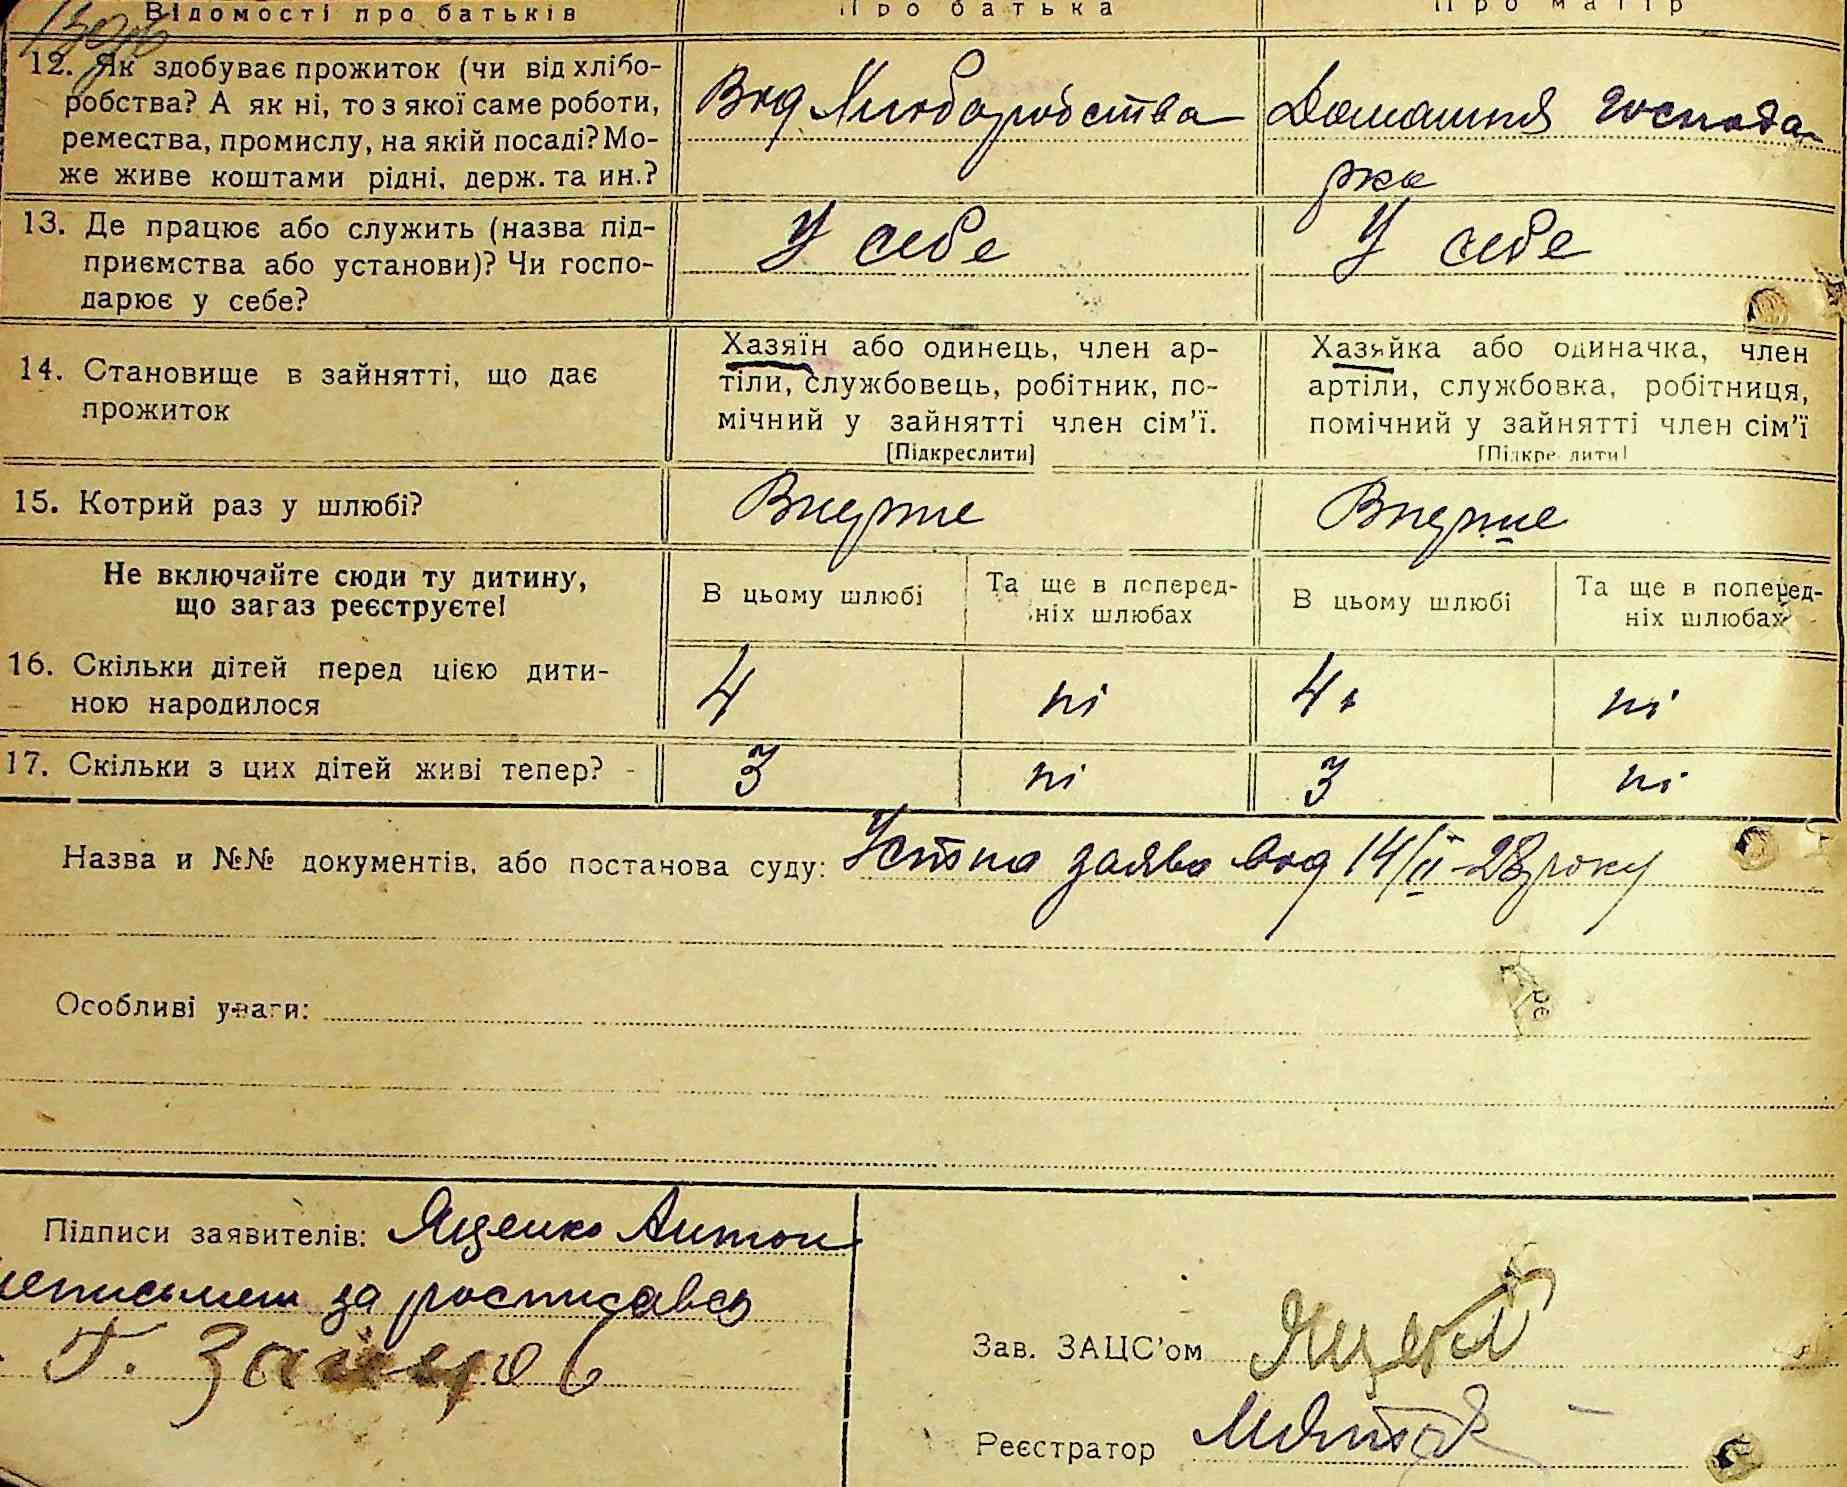 Відомості про батьків
Про батька
Про матір
12. Як здобуває прожиток (чи від хлібо-
робства? А як ні, то з якої саме роботи,
ремества, промислу, на якій посаді? Мо-
же живе коштами рідні, держ. та ин.?
Від Хліборобства
Домашня господа-
рка
13. Де працює або служить (назва під-
приємства або установи)? Чи госпо-
дарює у себе?
У себе
У себе
14. Становище в зайнятті, що дає
прожиток
Хазяїн або одинець, член ар-
тіли, службовець, робітник, по-
мічний у зайнятті член сім'ї.
[Підкреслити]
Хазяйка або одиначка, член
артіли, службовка, робітниця,
помічний у зайнятті член сім'ї
[Підкреслити]
15. Котрий раз у шлюбі?
Вперше
Вперше
Не включайте сюди ту дитину,
що зараз реєструєте!
В цьому шлюбі
Та ще в поперед-
ніх шлюбах
В цьому шлюбі
Та ще в поперед-
ніх шлюбах
16. Скільки дітей перед цією дити-
ною народилося
4
ні
4
ні
17. Скільки з цих дітей живі тепер?
3
ні
3
ні
Назва и №№ документів, або постанова суду: Устна заява від 14/II-28 року
Особливі уваги:
Підписи заявителів: Яценко Антон
неписьмен за росписавсь
Г.
Зав. ЗАЦС'ом
Реєстратор